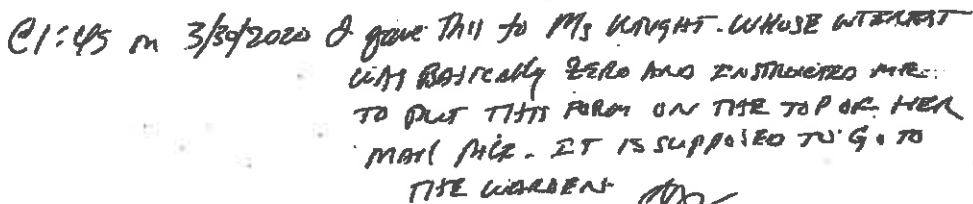 @1:45 on 3/30/2020 I gave This to Ms KNIGHT. WHOSE INTEREST
WAS BASICALLY ZERO AND INSTRUCTED ME
TO PUT THIS FORM ON THE TOP OF HER
MAIL PILE. IT IS SUPPOSED TO GO TO
THE WARDEN